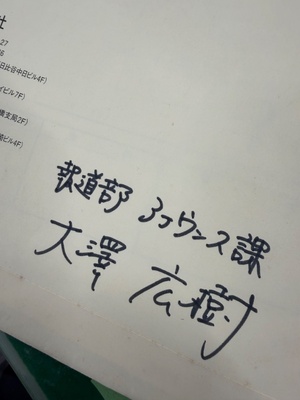 社
27
6
日比谷中日ビル4F)
イビル7F)
支局2F)
ビル4F)
報道部 アナウンス課
大澤 広樹